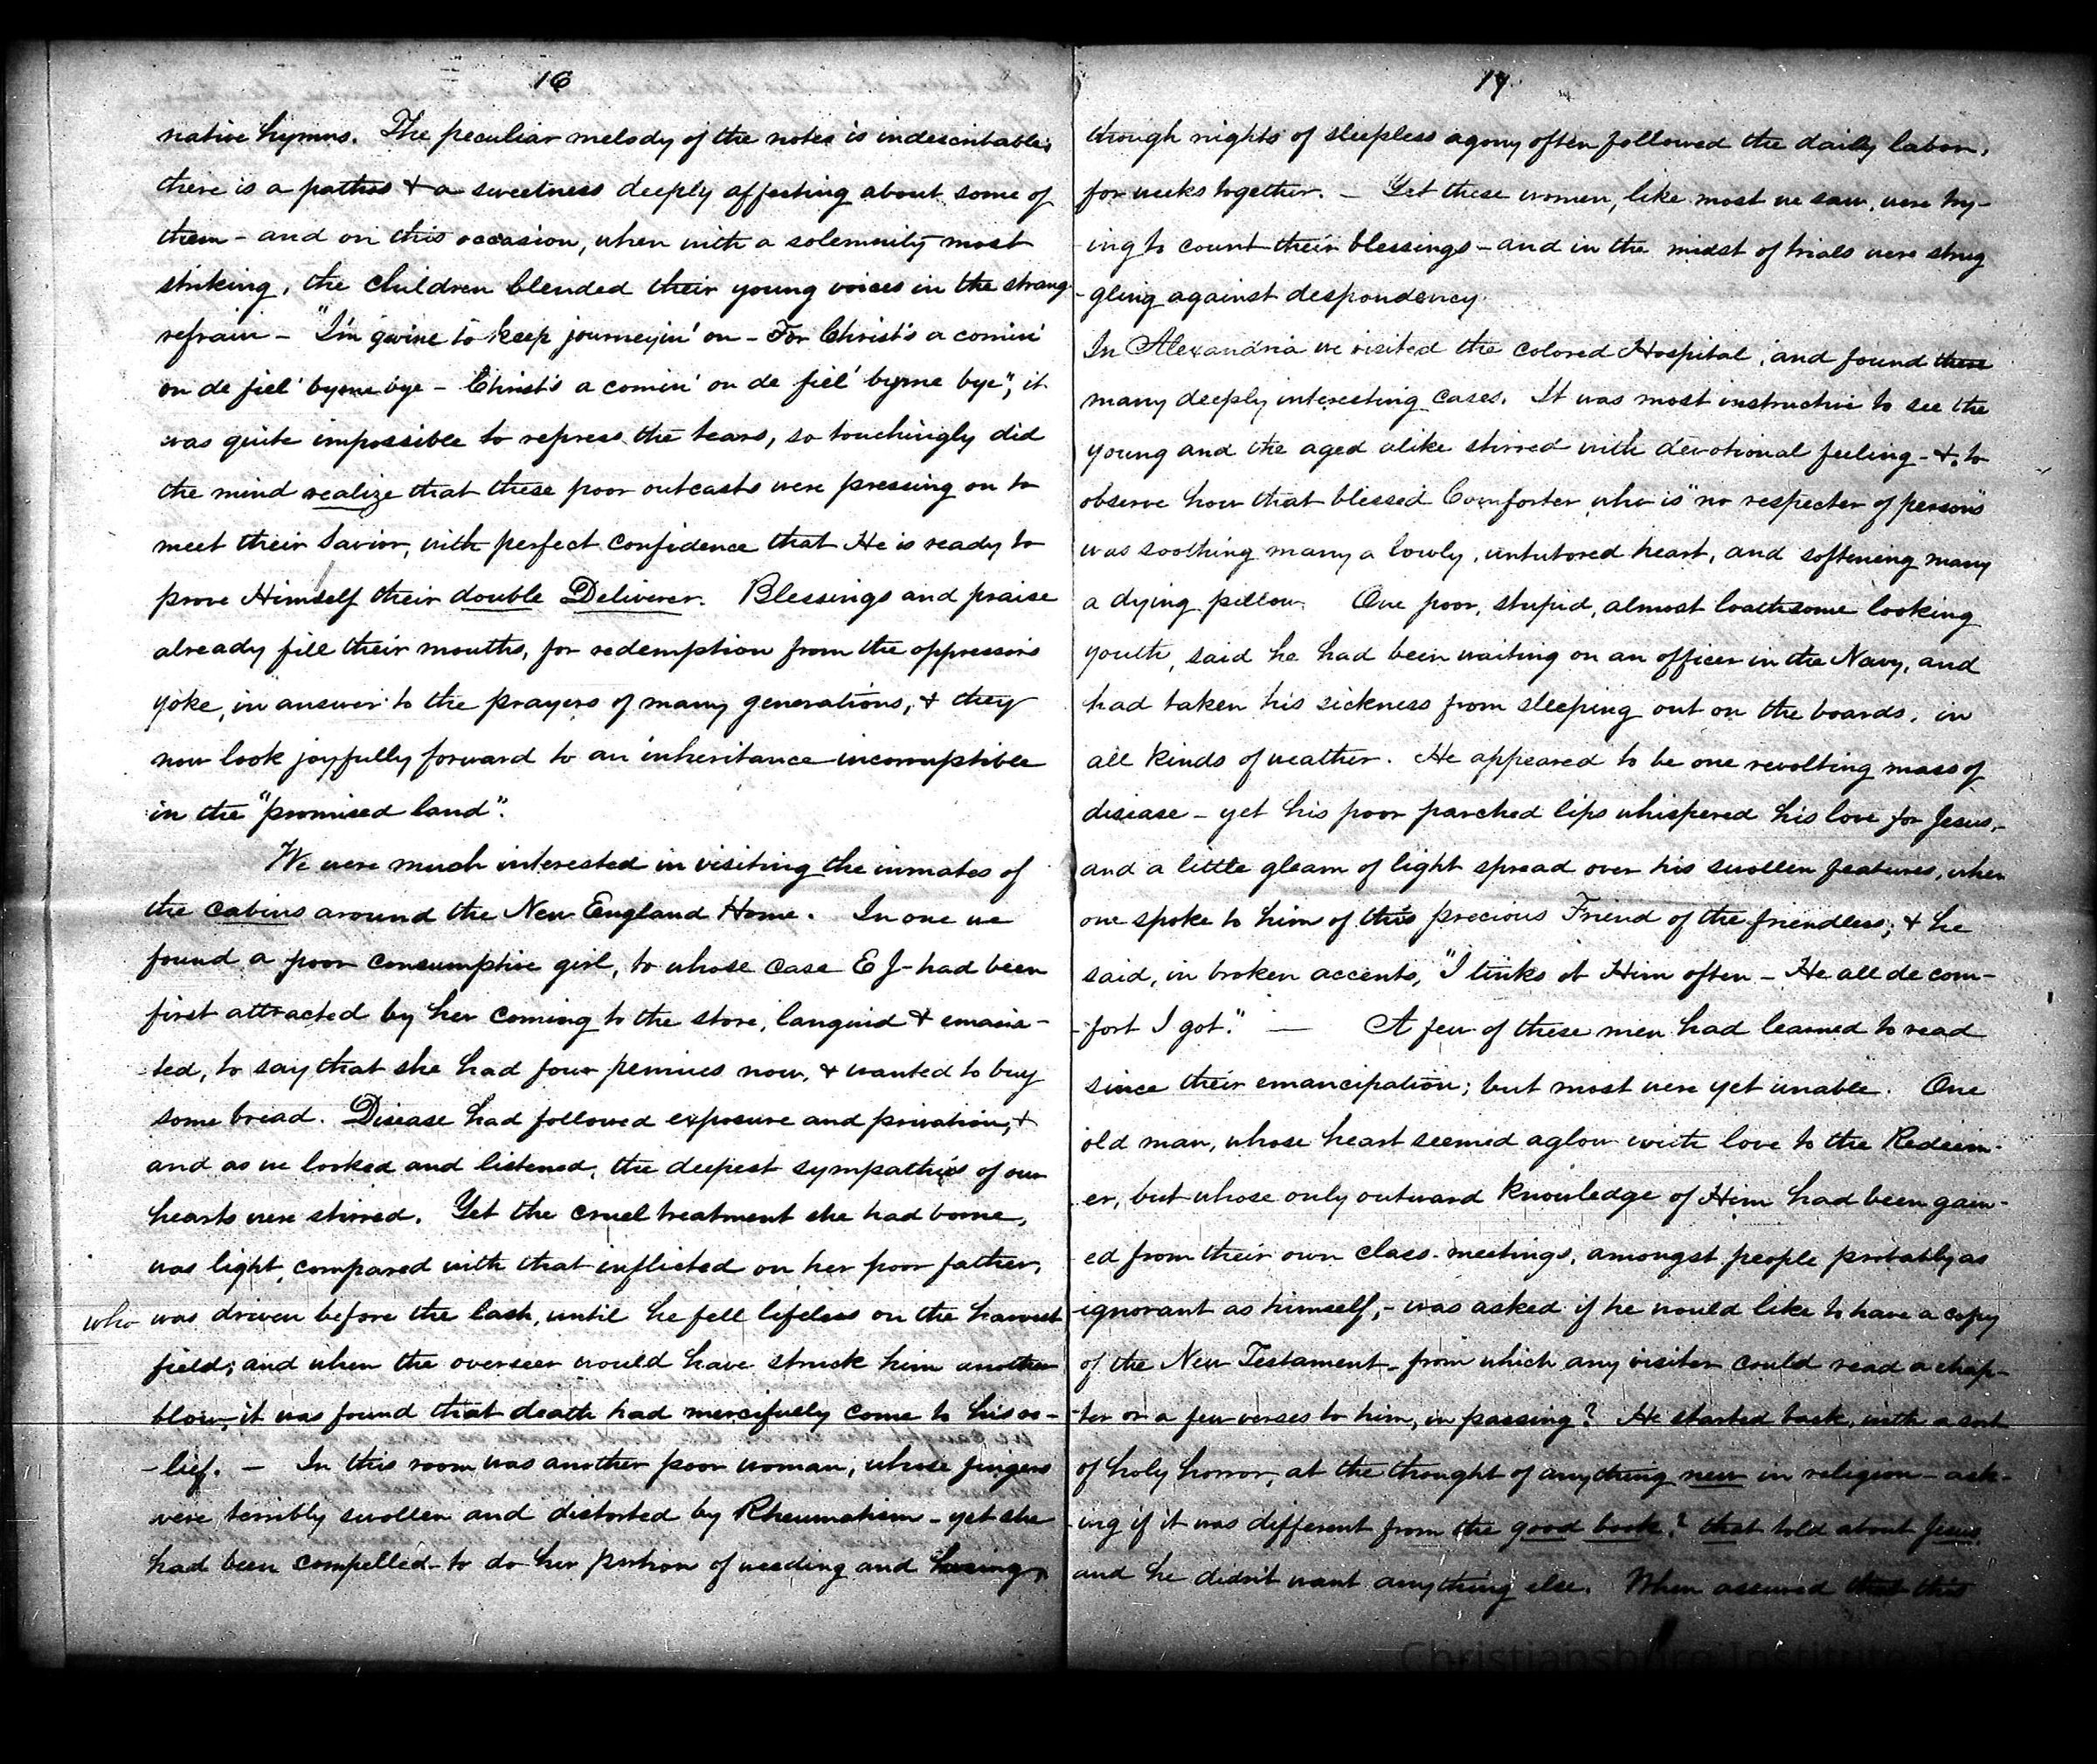 16
native hymns. The peculiar melody of the notes is indescribable;
there is a pathos & a sweetness deeply affecting about some of
them - and on this occasion, when with a solemnity most
striking, the children blended their young voices in the strang
refrain - "I'm gwine to keep journeyin' on - For Christ's a comin'
on de fiel' byme bye - Christ's a comin' on de fiel' byme bye", it
was quite impossible to repress the tears, so touchingly did
the mind realize that these poor outcasts were pressing on to
meet their Savior, with perfect confidence that He is ready to
prove Himself their double Deliverer. Blessings and praise
already fill their mouths, for redemption from the oppressors
yoke, in answer to the prayers of many generations, & they
now look joyfully forward to an inheritance incorruptible
in the "promised land".
We were much interested in visiting the inmates of
the cabins around the New England Home. In one we
found a poor consumptive girl, to whose case E J- had been
first attracted by her coming to the store, languid & emacia-
ted, to say that she had four pennies now, & wanted to buy
some bread. Disease had followed exposure and privation, &
and as we looked and listened, the deepest sympathies of our
hearts were stirred. Yet the cruel treatment she had borne,
was light, compared with that inflicted on her poor father,
who was driven before the lash, until he fell lifeless on the harvest
field; and when the overseer would have struck him another
blow, it was found that death had mercifully come to his re-
-lief. - In this room was another poor woman, whose fingers
were terribly swollen and distorted by Rheumatism - yet she
had been compelled to do her portion of weeding and hoeing,
17.
though nights of sleepless agony often followed the daily labor,
for weeks together. - Yet these women, like most we saw, were try-
-ing to count their blessings - and in the midst of trials were strug
-gling against despondency.
In Alexandria we visited the colored Hospital, and found there
many deeply interesting cases. It was most instructive to see the
young and the aged alike stirred with devotional feeling - & to
observe how that blessed Comforter who is "no respecter of persons"
was soothing many a lowly, untutored heart, and softening many
a dying pillow. One poor, stupid, almost loathsome looking
youth, said he had been waiting on an officer in the Navy, and
had taken his sickness from sleeping out on the boards, in
all kinds of weather. He appeared to be one revolting mass of
disease - yet his poor parched lips whispered his love for Jesus,-
and a little gleam of light spread over his swollen features, when
one spoke to him of this precious Friend of the friendless; & he
said, in broken accents, "I tinks ob Him often - He all de com-
-fort I got." - A few of these men had learned to read
since their emancipation; but most were yet unable. One
old man, whose heart seemed aglow with love to the Redeem-
er, but whose only outward knowledge of Him had been gain-
ed from their own class-meetings, amongst people probably as
ignorant as himself,- was asked if he would like to have a copy
of the New Testament - from which any visiter could read a chap-
-ter or a few verses to him, in passing? He started back, with a sort
of holy horror, at the thought of anything new in religion - ask-
-ing if it was different from the good book? that told about Jesus,
and he didn't want anything else. When assured that this
Christiansburg Institute, Inc